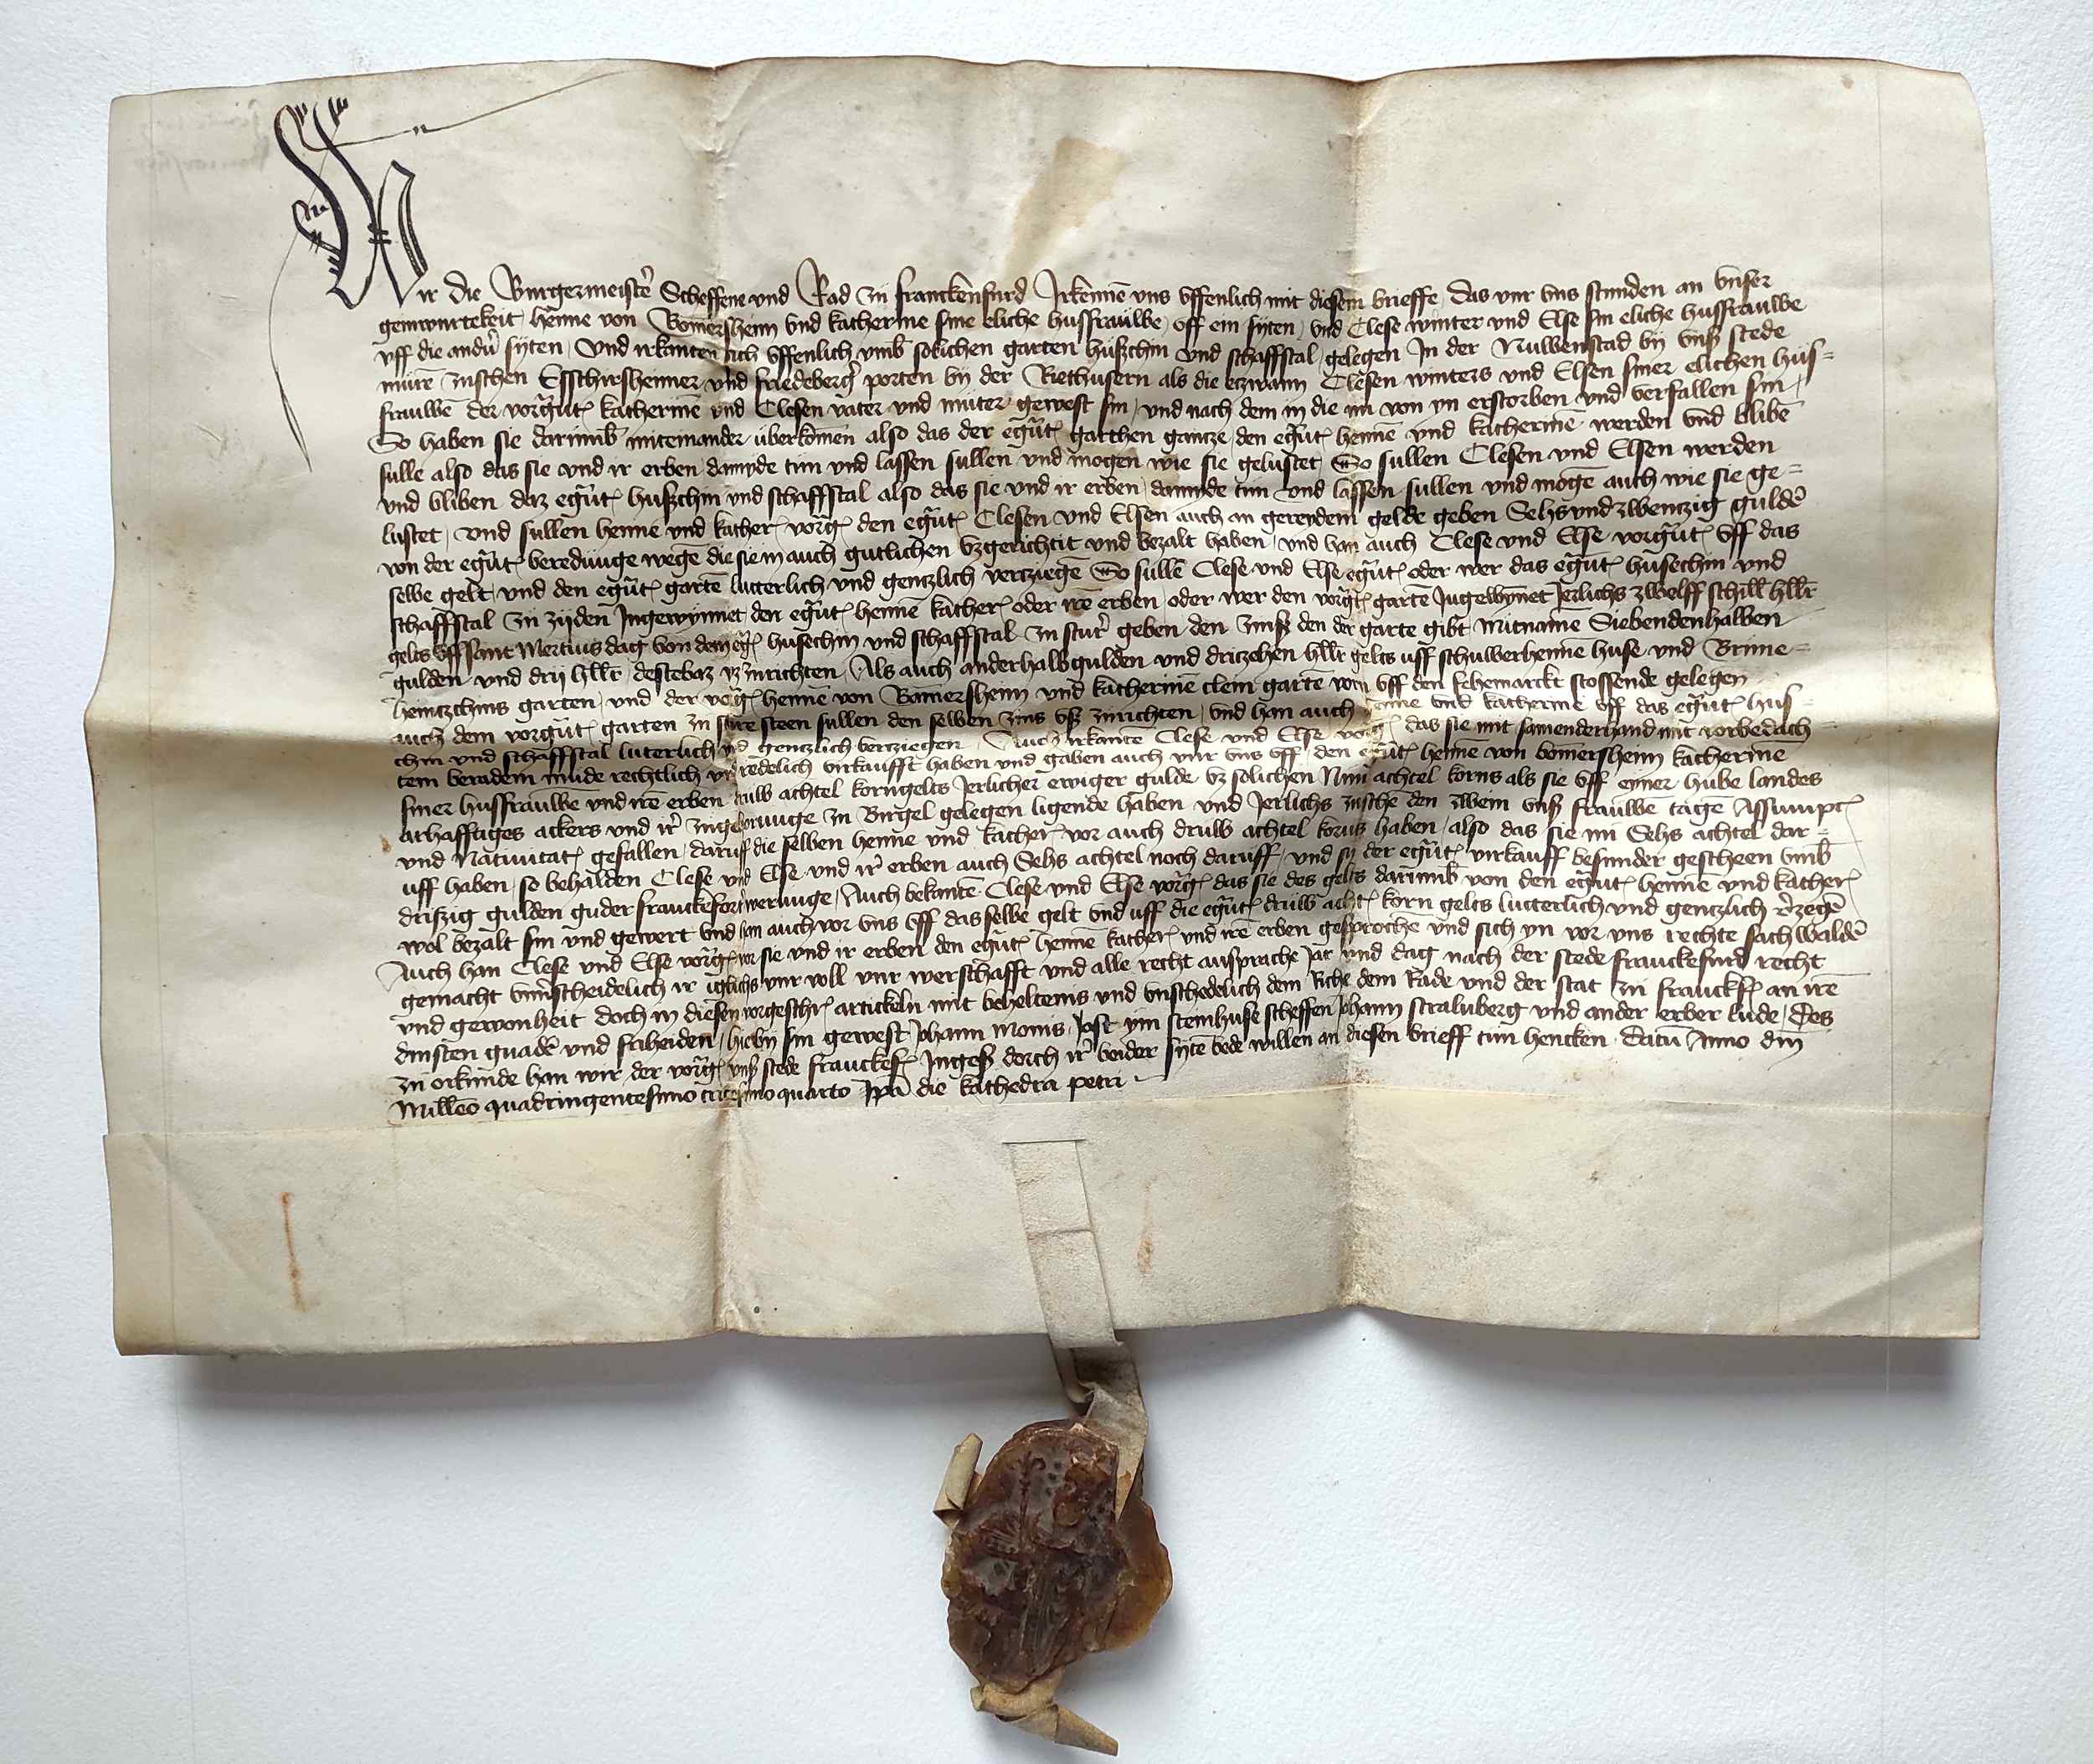 Wir die Burgermeistere Scheffene und Rad zu Franckenfurd Irkennen uns uffenlich mit diesem brieffe das vur uns stunden an unser
geinwurtekeit Henne von Bomersheim und Katherine sine eliche husfrauwe uff ein syten und Clese winter und Else sin eliche husfrauwe
uff die ander syten Und irkanten sich uffenlich umb solichen garten huszchin und schaffstal gelegen In der Nuwenstad by unß stede
muren zuschen Esschirsheimer und Friedeberger porten by der Riethusern als die etzwann Clesen winters und Elsen siner elichen hus=
frauwen der vorgnt Katherinen und Clesen vater und muter gewest sin und nach dem in die nu von yn erstorben und verfallen sin
So haben sie darumb miteinander uberkomen also das der egnt garthen gantze den egnt Hennen und Katherinen werden und bliben
sulle also das sie und ir erben damyde tun und lassen sullen und mogen wie sie gelustet So sullen Clesen und Elsen werden
und bliben daz egnt huszchin und schaffstal also das sie und ir erben damyde tun und lassen sullen und mogen auch wie sie ge=
lustet Und sullen Henne und Kather vorg den egnt Clesen und Elsen auch an gereydem gelde geben Sehsundzwentzig gulden
von der egnt beredunge wegen die sie in auch gutlichen ußgerichtit und bezalt haben und han auch Clese und Else vorgnt uff das
selbe gelt und den egnt garten lutterlich und gentzlich vercziegen So sullen Clese und Else egnt oder wer das egnt husechin und
schaffstal zu zijden Ingewynnet den egnt Hennen Kather oder iren erben oder wer den vorgt garten Ingewynnet Jerlichs zwelff schill hllr
gelts uff sant Mertins dag von dem eg husechin und schaffstal zu stur geben den zinß den der garte gibt mitnamen Siebendenhalben
gulden und drij hllr destebaz uz zurichten Als auch anderhalb gulden und driczehen hllr gelts uff schuwerhennen huse und Brune=
heintzchins garten und der vorg Hennen von Bomersheim und Katherinen clein garten vorn uff den Fehemarckt stossende gelegen
auch dem vorgnt garten zu sture steen sullen den selben zins uß zurichten und han auch Henne und Katherine uff das egnt hus=
chin und schaffstal luterlich und gentzlich verczigen Auch irkanten Clese und Else vorg das sie mit samenderhand mit vorbedach=
tem beradem mude rechtlich und redelich virkaufft haben und gaben auch vur uns uff den egnt Hennen von Bomersheim Katherine
siner husfrauwen und iren erben druw achtel korngelts Jerlicher ewiger gulde uz solichen Nun achtel korns als sie uff eyner hube landes
arhafftiges ackers und ir zugehorunge zu Birgel gelegen ligende haben und Jerlichs zuschen den zwein unß frauwe tage Assumpt
und Nativitat gefallen daruff die selben Henne und Kather vor auch druw achtel korns haben also das sie nu Sehs achtel dar=
uff haben so behalden Clese und Else und ir erben auch Sehs achtel noch daruff und sy der egnt virkauff besunder gescheen umb
driszig gulden guder Franckefort werunge Auch bekanten Clese und Else vorg das sie des gelts darumb von den egnt Hennen und Kather
wol bezalt sin und gewert und han auch vor uns uff das selbe gelt und uff die egnt druw acht korn gelts lutterlich und gentzlich verzegen
Auch han Clese und Else vorg vor sie und ir erben den egnt Hennen Kather und iren erben gesprochen und sich yn vor uns rechte sachwalden
gemacht unverscheidelich ir iglichs vur voll vur werschafft und alle recht ansprache Jar und dag nach der stede Franckefurd recht
und gewonheit doch in diesen vorgeschr artickeln mit beheltenis und unschedelich dem Riche dem Rade und der stat zu Franckf an iren
dinsten gnaden und friheiden hieby sin gewest Johann Monis Jost ym Steinhuse scheffen Johann Stralnberg und ander erber lude Des
zu orkunde han wir der vorg unß stede Franckef Ingeß dorch ir beider syten bede willen an diesen brieff tun hencken Datum Anno dm
Millesimo quadringentesimo tricesimo quarto Ipsa die kathedra petri